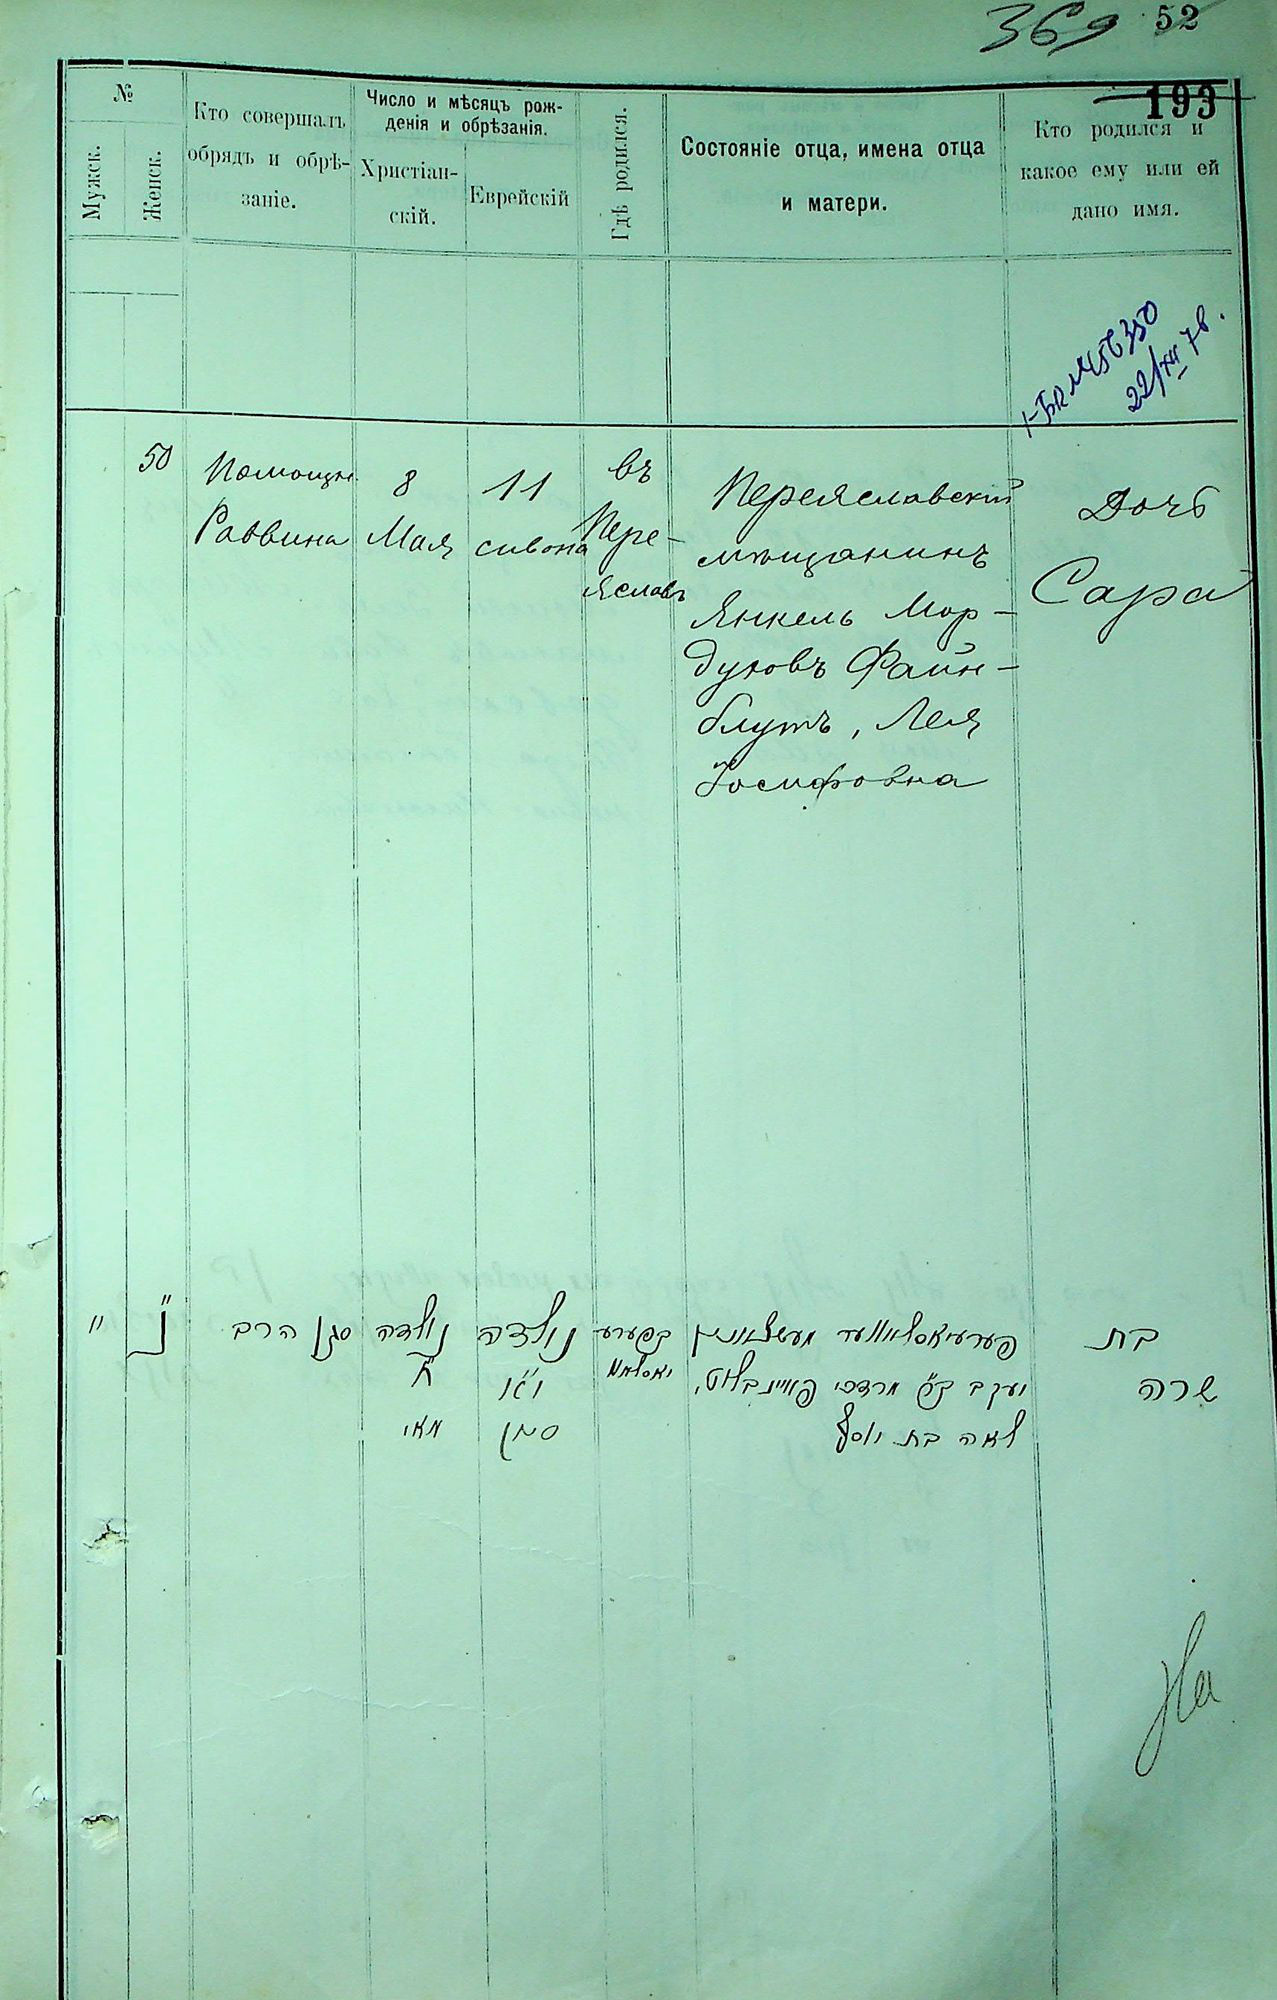 369 52
193
№
Мужск.
Женск.
Кто совершалъ
обрядъ и обрѣ-
заніе.
Число и мѣсяцъ рож-
денія и обрѣзанія.
Христіан-
скій.
Еврейскій
Гдѣ родился.
Состояніе отца, имена отца
и матери.
Кто родился и
какое ему или ей
дано имя.
22/XII 78.
50
Помощн.
Раввина
8
Мая
11
сивона
въ
Пере-
яславъ
Переяславскій
мѣщанинъ
Янкель Мор-
духовъ Файн-
блутъ, Лея
Іосифовна
Дочь
Сара
"
נ"
סגן הרב
נולדה
ח'
מאי
נולדה
י"א
סיון
בפערע
יאסלאוו
פערעיאסלאווער מעשצאנין
יעקב ב"ר מרדכי פאיינבלוט,
לאה בת יוסף
בת
שרה